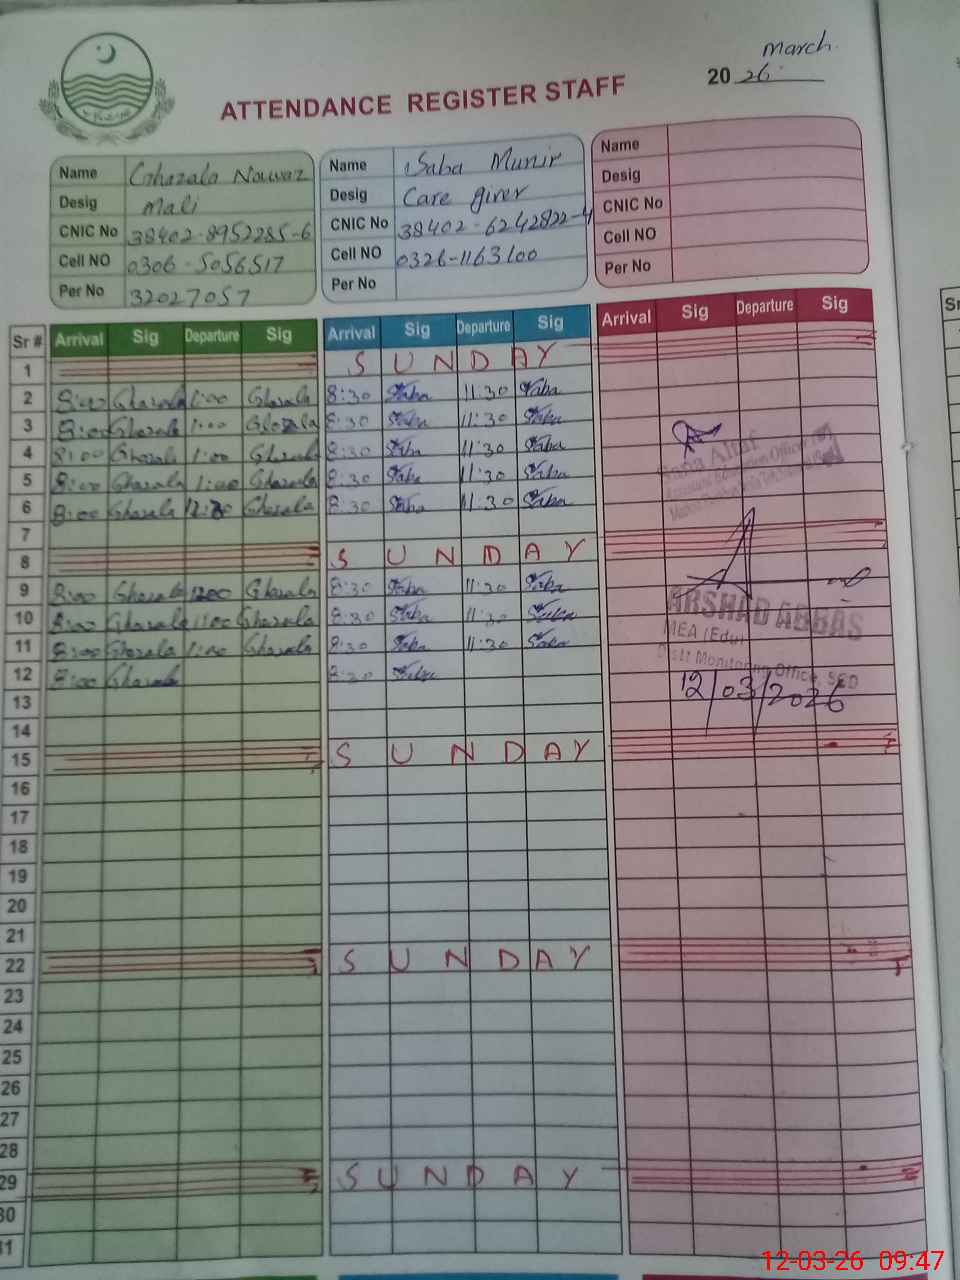 March.
20 26
ATTENDANCE REGISTER STAFF
Name Ghazala Nawaz
Desig Mali
CNIC No 38402-8952285-6
Cell NO 0306-5056517
Per No 32027057
Name Saba Munir
Desig Care giver
CNIC No 38402-6242822-4
Cell NO 0326-1163100
Per No
Name
Desig
CNIC No
Cell NO
Per No
Sr # Arrival Sig Departure Sig Arrival Sig Departure Sig Arrival Sig Departure Sig
1 SUNDAY
2 8:00 Ghazala 1:00 Ghazala 8:30 Saba 11:30 Saba
3 8:00 Ghazala 1:00 Ghazala 8:30 Saba 11:30 Saba
4 8:00 Ghazala 1:00 Ghazala 8:30 Saba 11:30 Saba
5 8:00 Ghazala 1:00 Ghazala 8:30 Saba 11:30 Saba
6 8:00 Ghazala 12:30 Ghazala 8:30 Saba 11:30 Saba
7
8 SUNDAY
9 8:00 Ghazala Ghazala 8:30 Saba 11:30 Saba
10 8:00 Ghazala 1:00 Ghazala 8:30 Saba 11:30 Saba
11 8:00 Ghazala 1:00 Ghazala 8:30 Saba 11:30 Saba
12 8:00 Ghazala 8:30 Saba
13
14
15 SUNDAY
16
17
18
19
20
21
22 SUNDAY
23
24
25
26
27
28
29 SUNDAY
30
31
Education Officer
ARSHAD ABBAS
MEA (Edu)
Distt Monitoring Office, SGD
12/03/2026
12-03-26 09:47